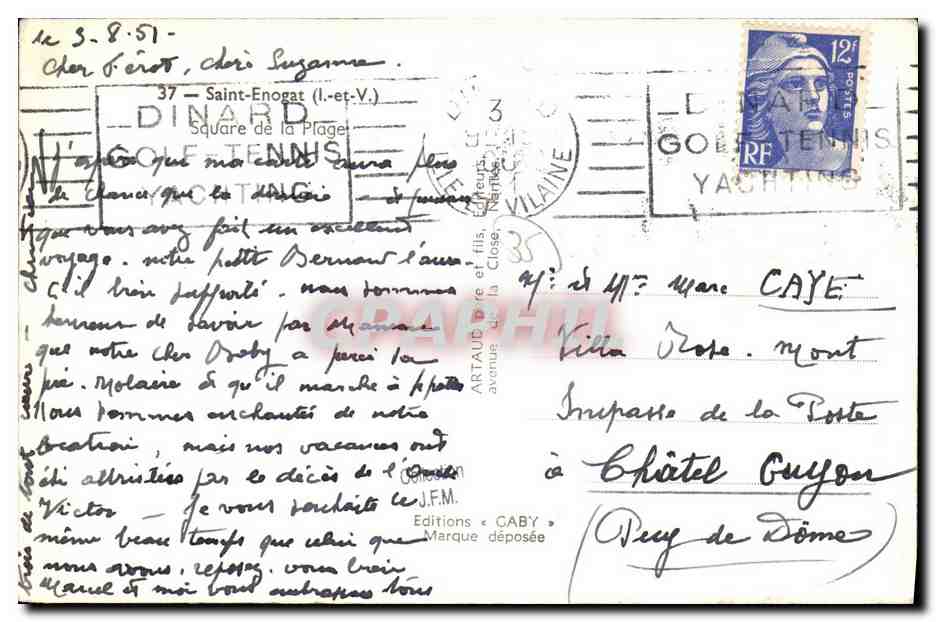 le 3-8-51-
Cher Férot, chère Suzanne.
37 — Saint-Enogat (I.-et-V.)
Square de la Plage
DINARD
GOLF-TENNIS
YACHTING
J'espère que ma carte aura plus
de chance que la dernière - et
que vous avez fait un excellent
voyage. notre petit Bernard l'aura-
t'il bien supporté. nous sommes
heureux de savoir par Maman
que notre cher Baby a percé sa
pré-Molaire et qu'il marche à 4 pattes
Nous sommes enchantés de notre
location, mais nos vacances ont
été attristées par le décès de l'Oncle
Victor — Je vous souhaite le
même beau temps que celui que
nous avons. reposez-vous bien
Marcel et moi vous embrassons tous
trois de tout coeur —
3
VILAINE
35
ARTAUD Père et fils, Editeurs,
avenue de la Close, Nantes
Collection
J.F.M.
Editions « GABY »
Marque déposée
CPARHTI
12F
POSTES
RF
DINARD
GOLF-TENNIS
YACHTING
Mr. et Mme Marc CAYE
Villa Rose-Mont
Impasse de la Poste
à Châtel Guyon
(Puy de Dôme)